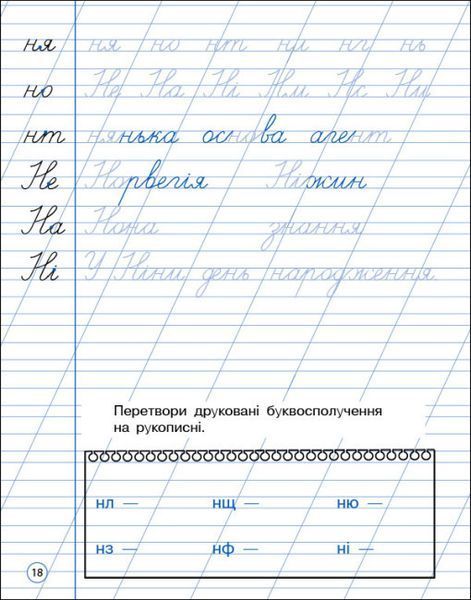 ня ня но нт ни нг нь
но Не На Ні Жм Нс Ни
нт нянька основа агент
Не Норвегія Ніжин
На Нона знання
Ні У Ніни день народження.
Перетвори друковані буквосполучення
на рукописні.
нл — нщ — ню —
нз — нф — ні —
18